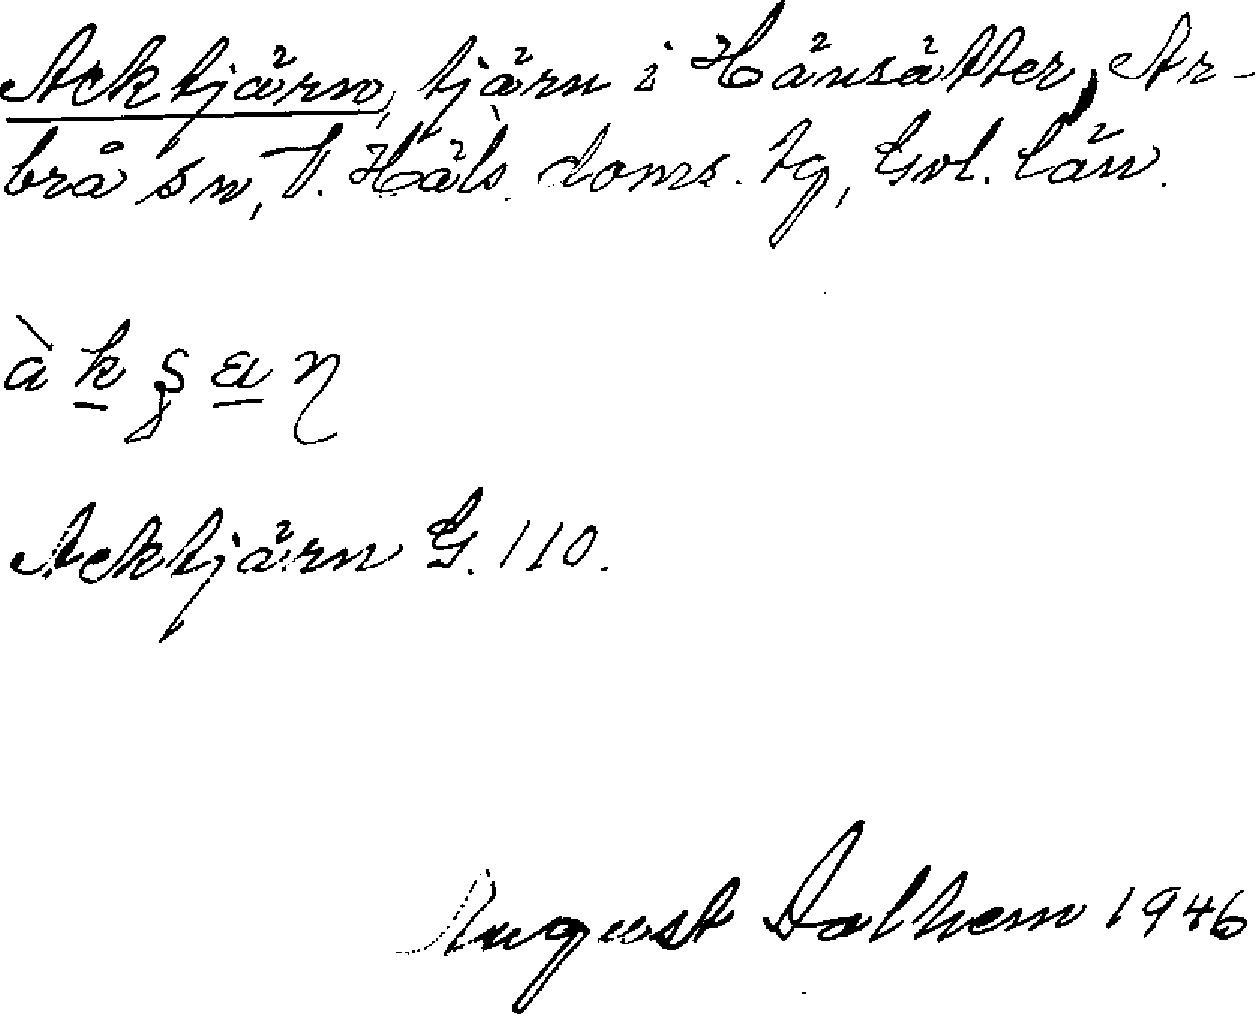 Acktjärn, tjärn i Hänsätter, Ar-
brå sn, V. Häls. doms. tg, Gvl. län.
Acktjärn G. 110.
August Dalhem 1946